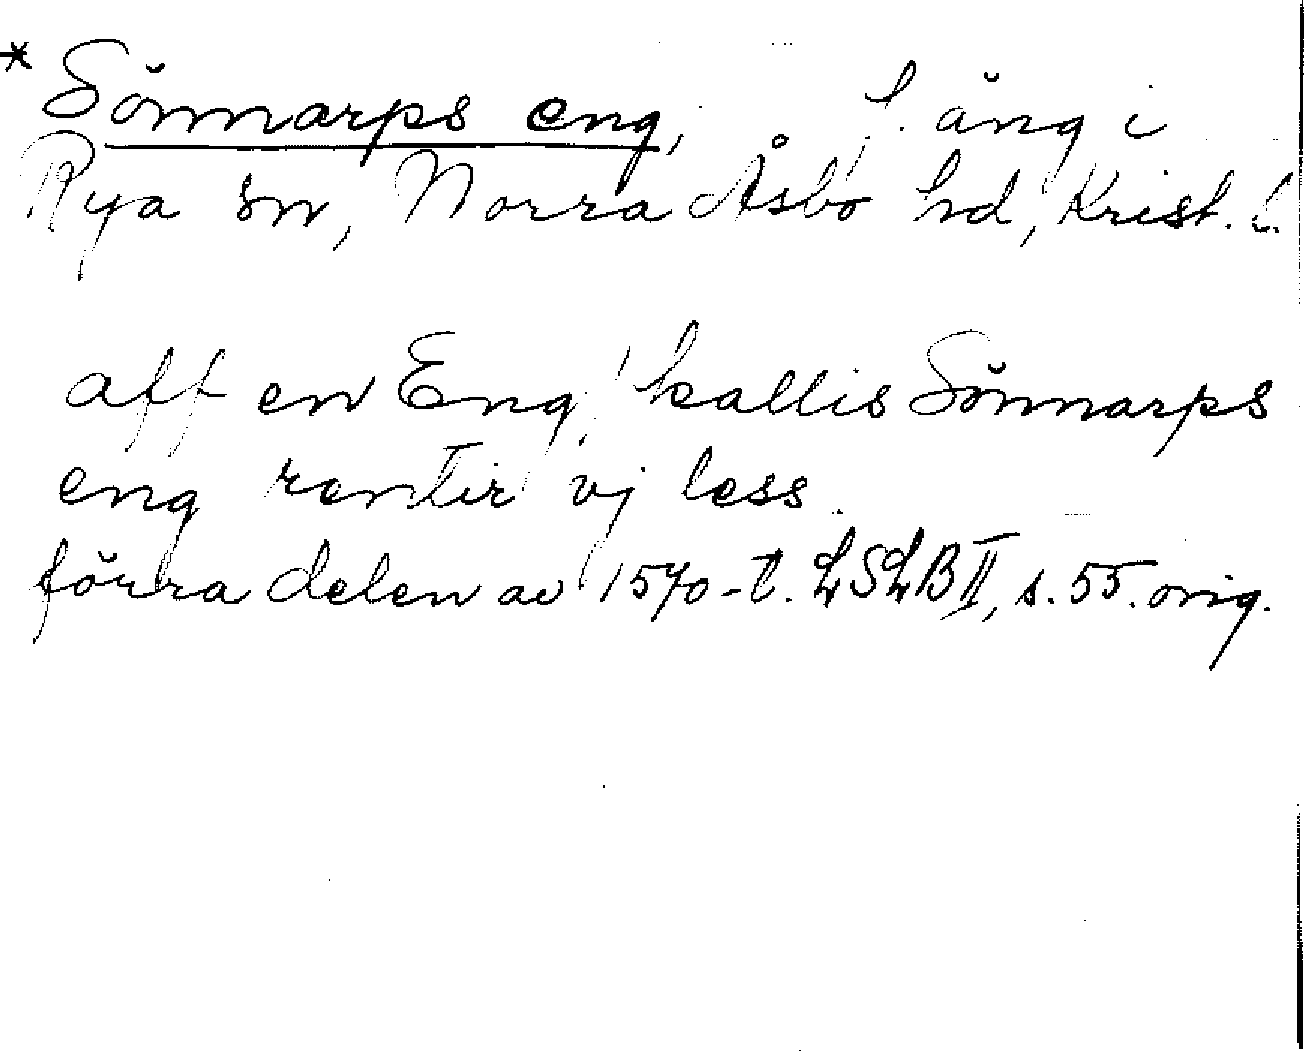 * Sönnarps eng, f. äng i
Rya sn, Norra Åsbo hd, Krist. l.
aff en Eng kallis Sönnarps
eng rentir vj less
förra delen av 1570-t. LSLB II, s. 55. orig.